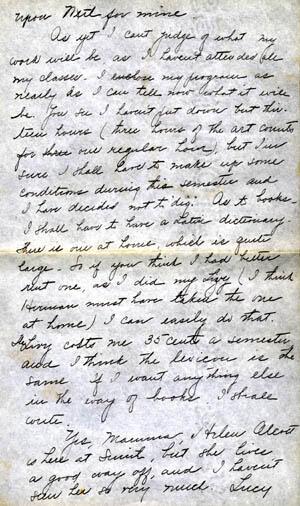 upon Neil for mine.
As yet I can't judge of what my
work will be as I haven't attended all
my classes. I enclose my program as
nearly as I can tell now what it will
be. You see I haven't put down but thir-
teen hours (three hours of the art counts
for three one regular hour) but I'm
sure I shall have to make up some
conditions during this semester and
I have decided not to dig. As to books-
I shall have to have a Latin dictionary-
there is one at home, which is quite
large. So if you think I had better
rent one, as I did my Livy (I think
Herman must have taken the one
at home) I can easily do that.
Livy costs me 35 cents a semester
and I think the lexicon is the
same. If I want anything else
in the way of books I shall
write.
Yes, Mamma, Helen Alcott
is here at Smith, but she lives
a good way off, and I haven't
seen her so very much. Lucy